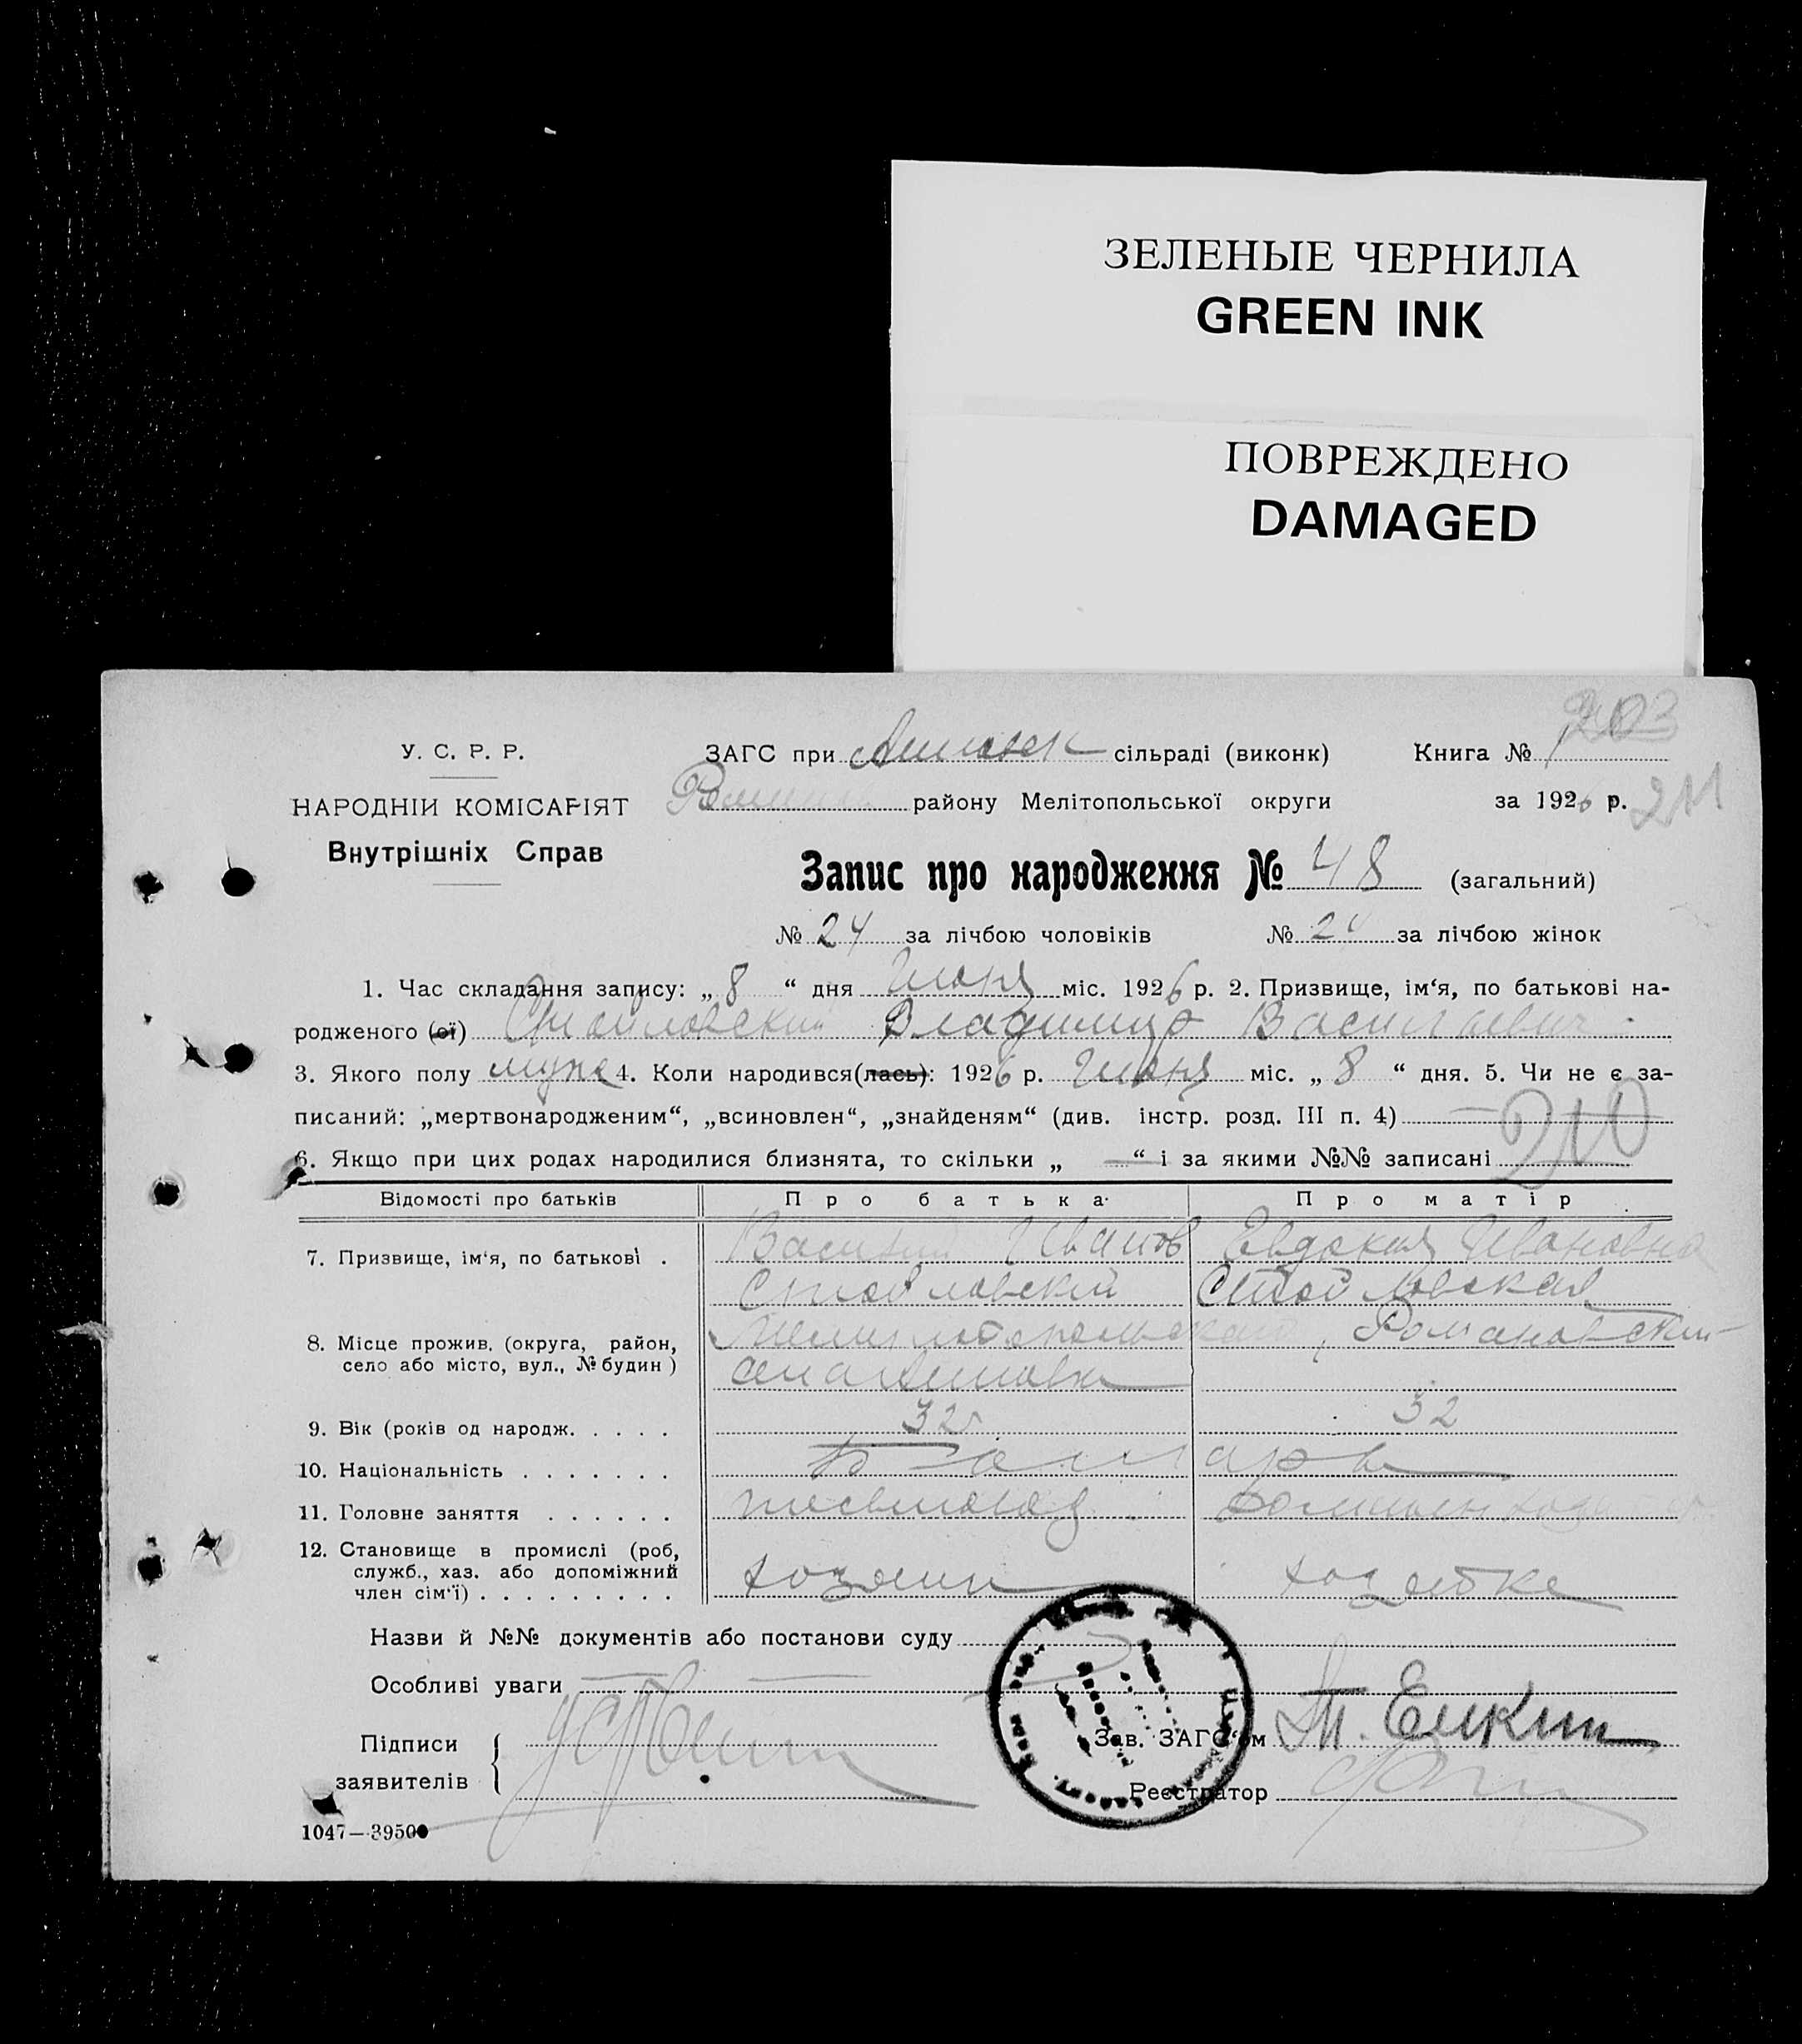 ЗЕЛЕНЫЕ ЧЕРНИЛА
GREEN INK
ПОВРЕЖДЕНО
DAMAGED
203
У. С. Р. Р.
ЗАГС при сільраді (виконк) Книга № 1
НАРОДНІЙ КОМІСАРІЯТ
району Мелітопольської округи за 1926 р. 211
Внутрішніх Справ
Запис про народження № 48 (загальний)
№ 24 за лічбою чоловіків № за лічбою жінок
1. Час складання запису: „ 8 “ дня Июня міс. 1926 р. 2. Призвище, ім‘я, по батькові на-
родженого (ої) Стойловский Владимир Васильевич
3. Якого полу муж 4. Коли народився(лась): 1926 р. Июня міс. „ 8 “ дня. 5. Чи не є за-
писаний: „мертвонародженим“, „всиновлен“, „знайденям“ (див. інстр. розд. III п. 4) —
210
6. Якщо при цих родах народилися близнята, то скільки „ — “ і за якими №№ записані
Відомості про батьків Про батька Про матір
7. Призвище, ім‘я, по батькові . Василий Иванов Евдокия Ивановна
Стойловский Стойловская
8. Місце прожив. (округа, район, Мелитопольская, Романовский
село або місто, вул., № будин )
9. Вік (років од народж. . . . . 32 32
10. Національність . . . . . . . Болгары
11. Головне заняття . . . . . .
12. Становище в промислі (роб,
служб., хаз. або допоміжний хозяин хозяйка
член сім‘ї) . . . . . . . . .
Назви й №№ документів або постанови суду
Особливі уваги
Підписи
заявителів
Зав. ЗАГС‘ом
Реєстратор
1047—39500